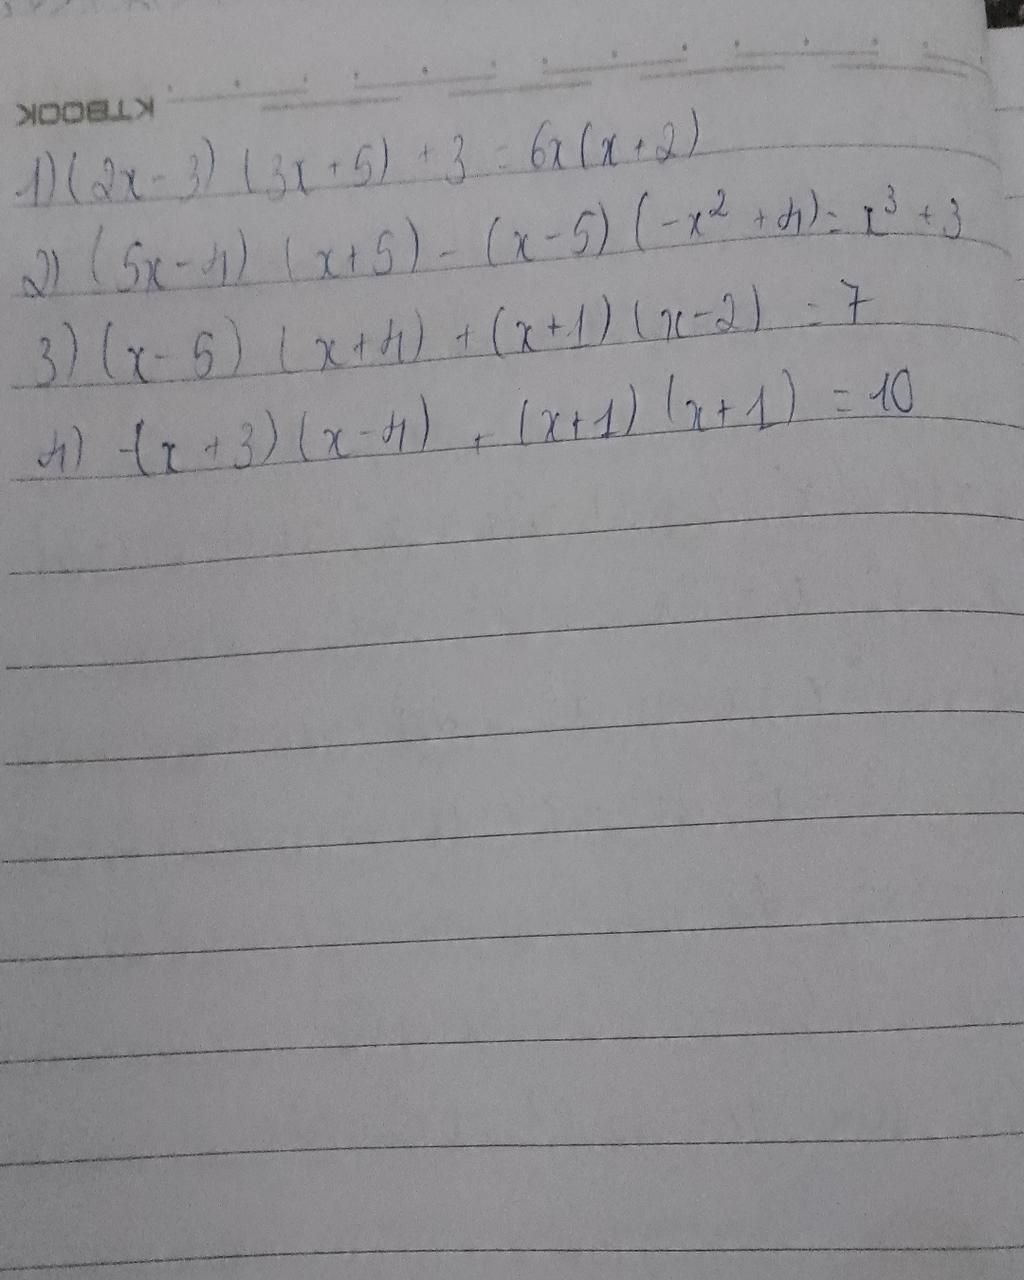 KTBOOK
1) (2x - 3) (3x + 5) + 3 = 6x (x + 2)
2) (5x - 4) (x + 5) - (x - 5) (-x² + 4) = x³ + 3
3) (x - 5) (x + 4) + (x + 1) (x - 2) = 7
4) -(x + 3) (x - 4) + (x + 1) (x + 1) = 10